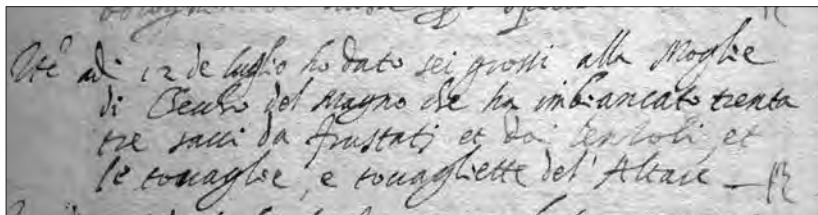 Itē adi 12 de luglio ho dato sei grossi alla Moglie
di Cecho del Magno che ha imbiancato trenta
tre sacci da frustati et doi lenzoli, et
le tovaglie, e tovagliette del' Altare —